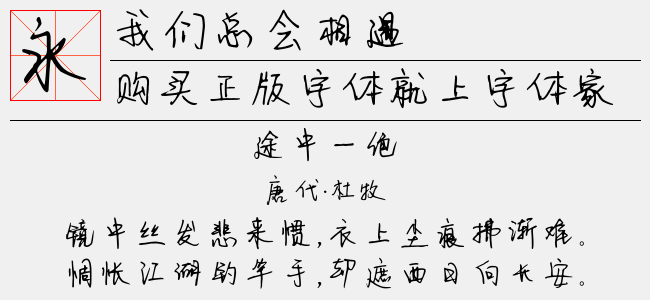 永
我们总会相遇
购买正版字体就上字体家
途中一绝
唐代·杜牧
镜中丝发悲来惯,衣上尘痕拂渐难。
惆怅江湖钓竿手,却遮西日向长安。